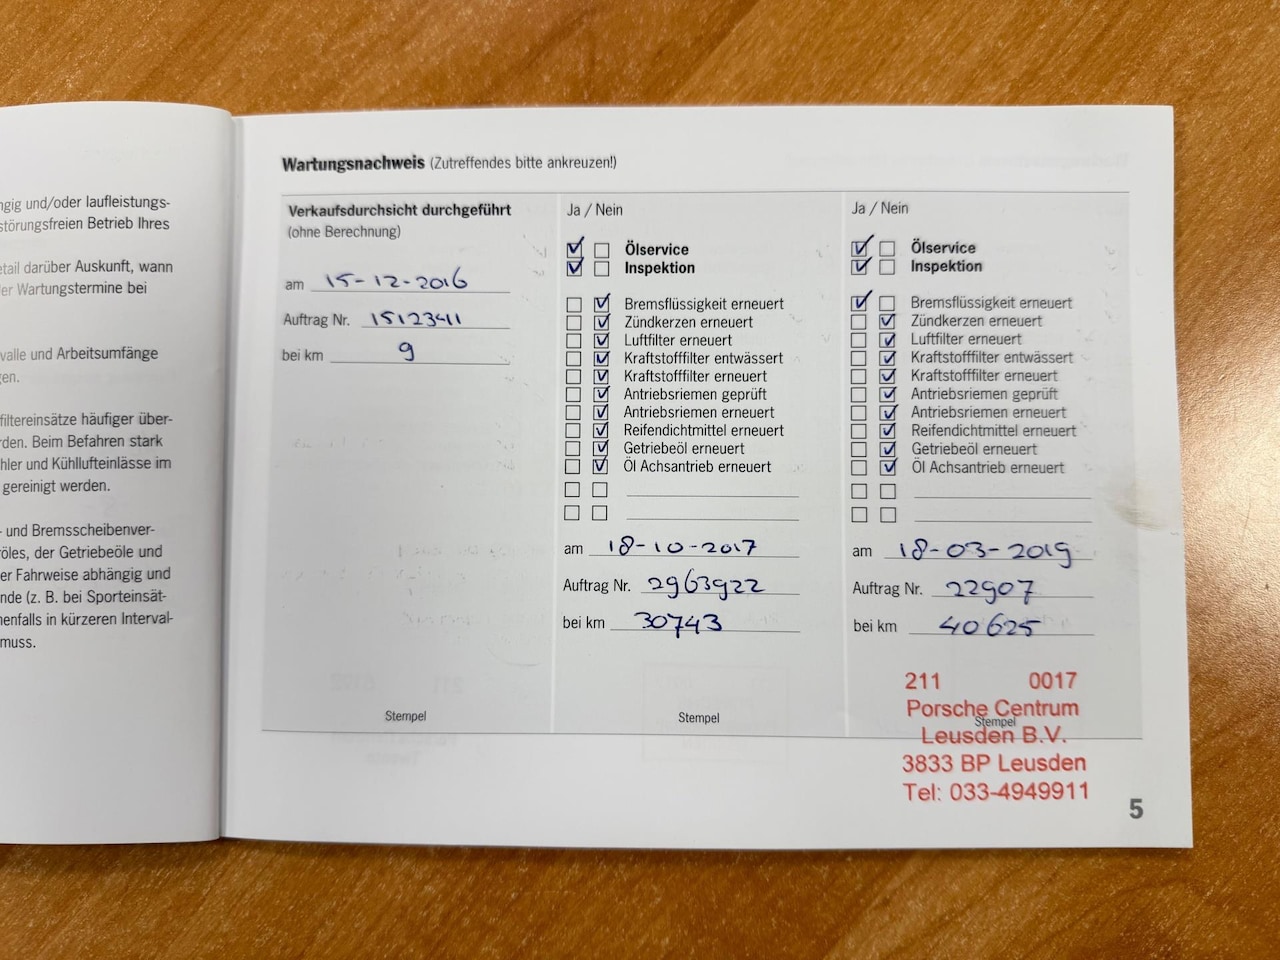 ngig und/oder laufleistungs-
störungsfreien Betrieb Ihres
etail darüber Auskunft, wann
er Wartungstermine bei
valle und Arbeitsumfänge
gen.
filtereinsätze häufiger über-
rden. Beim Befahren stark
hler und Kühllufteinlässe im
gereinigt werden.
- und Bremsscheibenver-
röles, der Getriebeöle und
er Fahrweise abhängig und
nde (z. B. bei Sporteinsät-
nenfalls in kürzeren Interval-
muss.
Wartungsnachweis (Zutreffendes bitte ankreuzen!)
Verkaufsdurchsicht durchgeführt
(ohne Berechnung)
am 15-12-2016
Auftrag Nr. 15123411
bei km 9
Stempel
Ja / Nein
Ölservice
Inspektion
Bremsflüssigkeit erneuert
Zündkerzen erneuert
Luftfilter erneuert
Kraftstofffilter entwässert
Kraftstofffilter erneuert
Antriebsriemen geprüft
Antriebsriemen erneuert
Reifendichtmittel erneuert
Getriebeöl erneuert
Öl Achsantrieb erneuert
am 18-10-2017
Auftrag Nr. 2963922
bei km 30743
Stempel
Ja / Nein
Ölservice
Inspektion
Bremsflüssigkeit erneuert
Zündkerzen erneuert
Luftfilter erneuert
Kraftstofffilter entwässert
Kraftstofffilter erneuert
Antriebsriemen geprüft
Antriebsriemen erneuert
Reifendichtmittel erneuert
Getriebeöl erneuert
Öl Achsantrieb erneuert
am 18-03-2019
Auftrag Nr. 22907
bei km 40625
211 0017
Porsche Centrum
Stempel
Leusden B.V.
3833 BP Leusden
Tel: 033-4949911
5